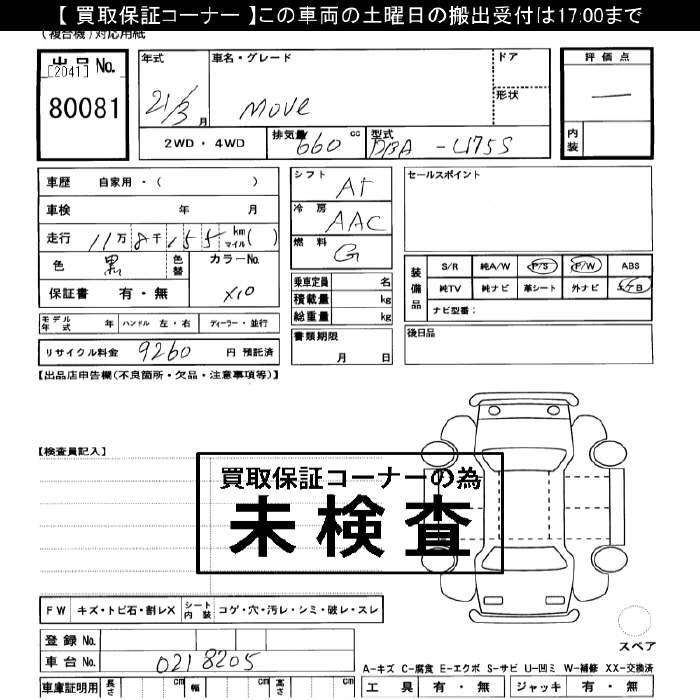 【 買取保証コーナー 】この車両の土曜日の搬出受付は17:00まで
(複合機)対応用紙
出品 No.
[2041]
80081
年式
21/3 月
車名・グレード
MOVE
ドア
形状
評価点
―
内装
2WD ・ 4WD
排気量 660 cc
型式 DBA-L175S
車歴 自家用・( )
車検 年 月
走行 11万 8千 155 km マイル( )
色 黒
色替
カラーNo. X10
保証書 有・無
モデル年式 年 ハンドル 左・右 ディーラー・並行
リサイクル料金 9260 円 預託済
シフト AT
冷房 AAC
燃料 G
乗車定員 名
積載量 kg
総重量 kg
書類期限
月 日
セールスポイント
装備品
S/R 純A/W P/S P/W ABS
純TV 純ナビ 革シート 外ナビ エアB
ナビ型番:
後日品
【出品店申告欄(不良箇所・欠品・注意事項等)】
【検査員記入】
買取保証コーナーの為
未検査
FW キズ・トビ石・割レX シート内装 コゲ・穴・汚レ・シミ・破レ・スレ
登録 No.
車台 No. 0218205
車庫証明用 長さ cm 幅 cm 高さ cm
スペア
A-キズ C-腐食 E-エクボ S-サビ U-凹ミ W-補修 XX-交換済
工具 有・無 ジャッキ 有・無